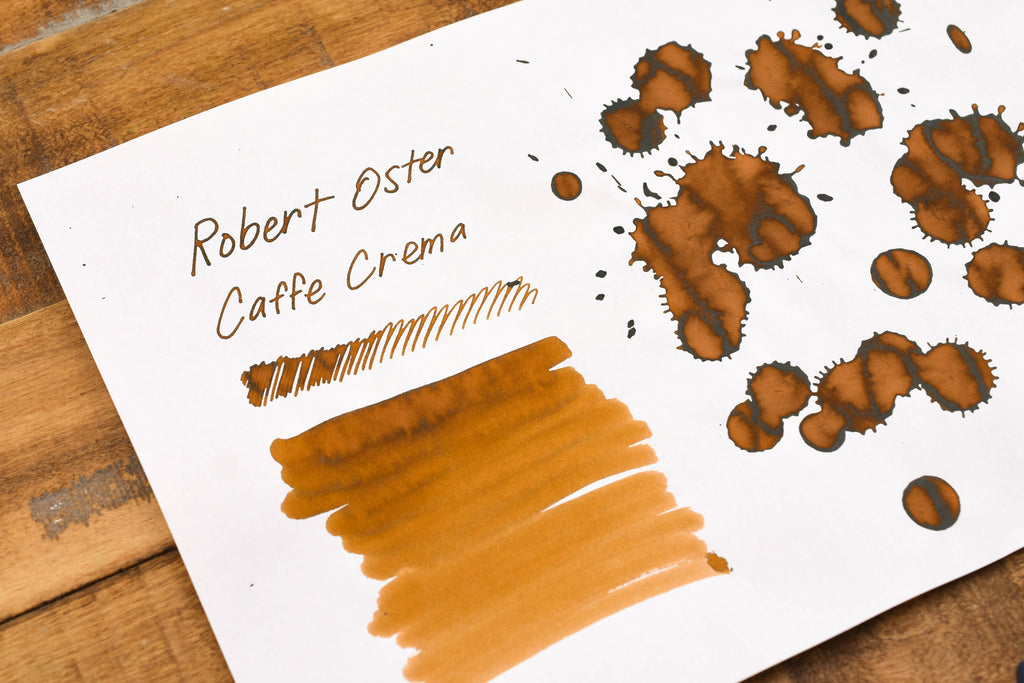 Robert Oster
Caffe Crema